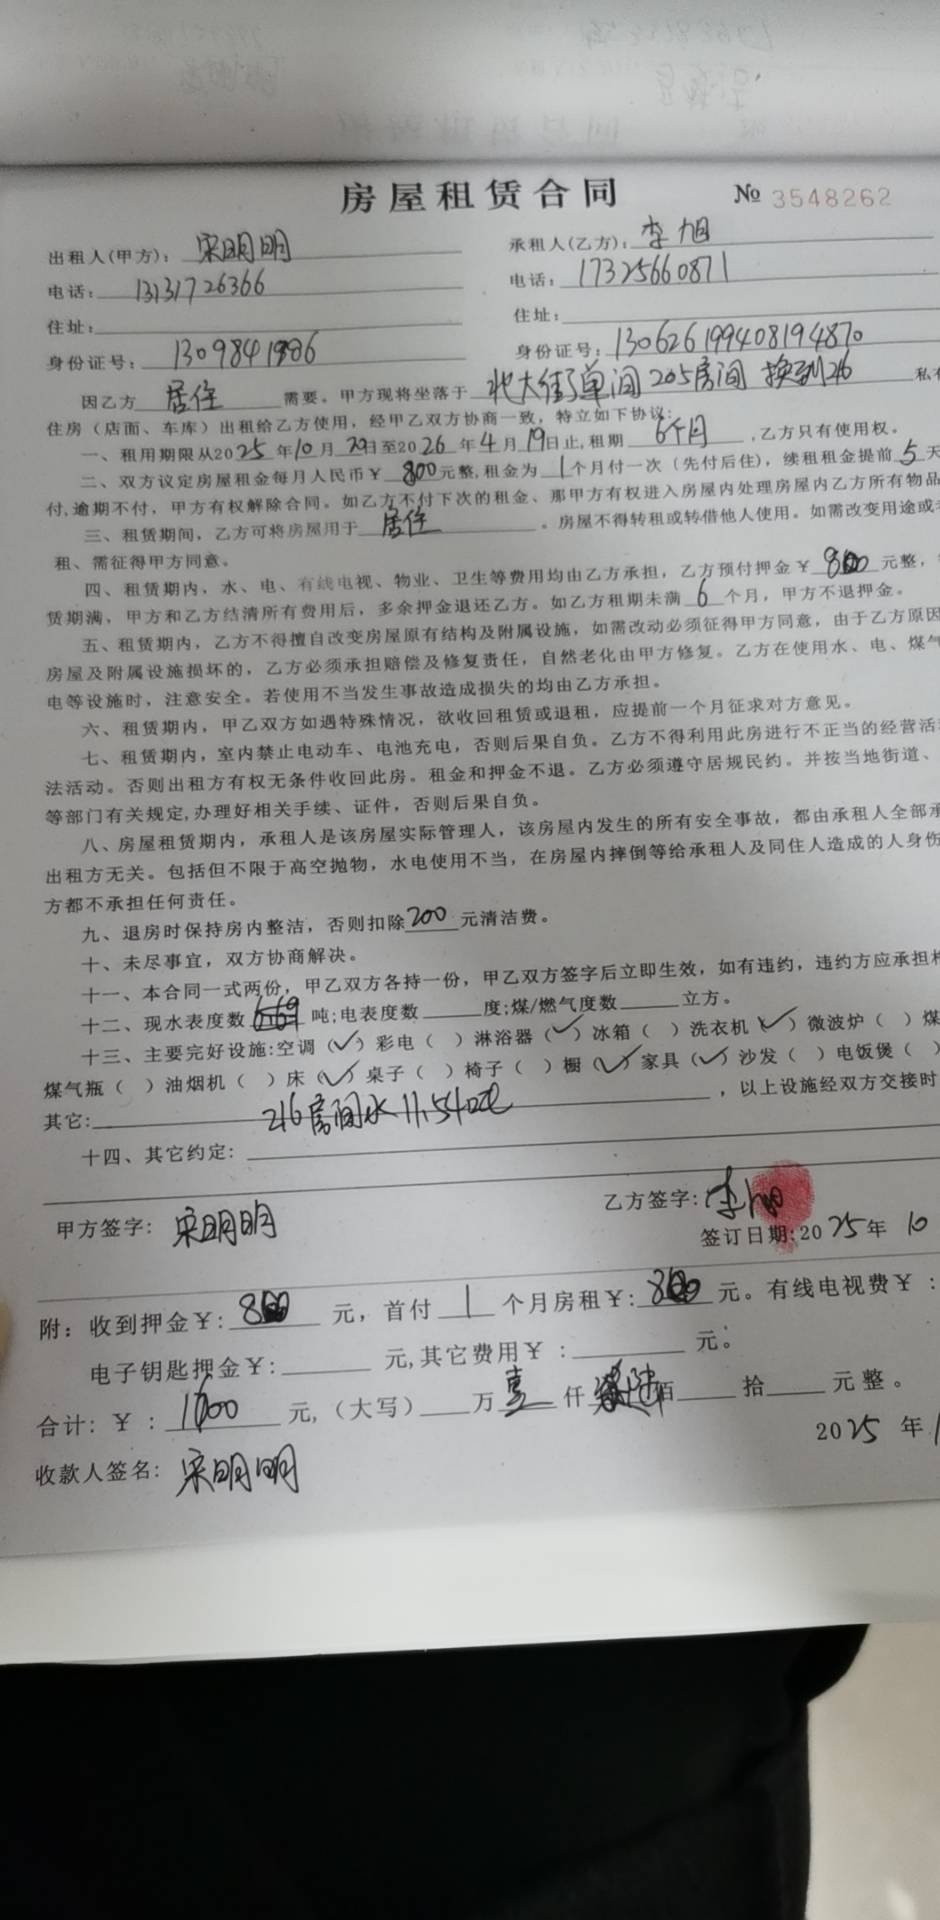 房屋租赁合同 № 3548262
出租人(甲方): 宋明明 承租人(乙方): 李旭
电话: 13131726366 电话: 17325660871
住址: 住址:
身份证号: 1309841986 身份证号: 130626199408194870
因乙方 居住 需要。甲方现将坐落于 北大街单间205房间 换到216 私有
住房（店面、车库）出租给乙方使用，经甲乙双方协商一致，特立如下协议:
一、租用期限从2025年10月20日至2026年4月19日止,租期 6个月 ,乙方只有使用权。
二、双方议定房屋租金每月人民币￥ 800 元整,租金为 1 个月付一次（先付后住），续租租金提前 5 天
付,逾期不付，甲方有权解除合同。如乙方不付下次的租金、那甲方有权进入房屋内处理房屋内乙方所有物品
三、租赁期间，乙方可将房屋用于 居住 。房屋不得转租或转借他人使用。如需改变用途或
租、需征得甲方同意。
四、租赁期内，水、电、有线电视、物业、卫生等费用均由乙方承担，乙方预付押金￥ 800 元整，
赁期满，甲方和乙方结清所有费用后，多余押金退还乙方。如乙方租期未满 6 个月，甲方不退押金。
五、租赁期内，乙方不得擅自改变房屋原有结构及附属设施，如需改动必须征得甲方同意，由于乙方原因
房屋及附属设施损坏的，乙方必须承担赔偿及修复责任，自然老化由甲方修复。乙方在使用水、电、煤气
电等设施时，注意安全。若使用不当发生事故造成损失的均由乙方承担。
六、租赁期内，甲乙双方如遇特殊情况，欲收回租赁或退租，应提前一个月征求对方意见。
七、租赁期内，室内禁止电动车、电池充电，否则后果自负。乙方不得利用此房进行不正当的经营活
法活动。否则出租方有权无条件收回此房。租金和押金不退。乙方必须遵守居规民约。并按当地街道、
等部门有关规定,办理好相关手续、证件，否则后果自负。
八、房屋租赁期内，承租人是该房屋实际管理人，该房屋内发生的所有安全事故，都由承租人全部承
出租方无关。包括但不限于高空抛物，水电使用不当，在房屋内摔倒等给承租人及同住人造成的人身伤
方都不承担任何责任。
九、退房时保持房内整洁，否则扣除 200 元清洁费。
十、未尽事宜，双方协商解决。
十一、本合同一式两份，甲乙双方各持一份，甲乙双方签字后立即生效，如有违约，违约方应承担相
十二、现水表度数 669 吨;电表度数 度;煤/燃气度数 立方。
十三、主要完好设施:空调（✓）彩电（ ）淋浴器（✓）冰箱（ ）洗衣机（✓）微波炉（ ）煤
煤气瓶（ ）油烟机（ ）床（✓）桌子（ ）椅子（ ）橱（✓）家具（✓）沙发（ ）电饭煲（ ）
其它: 216房间水11.540吨 ，以上设施经双方交接时
十四、其它约定:
甲方签字: 宋明明 乙方签字: 李旭
签订日期:2025年 10
附: 收到押金￥: 800 元，首付 1 个月房租￥: 800 元。有线电视费￥:
电子钥匙押金￥: 元,其它费用￥: 元。
合计: ￥: 1600 元,（大写） 万 壹 仟 陆 佰 拾 元整。
2025 年
收款人签名: 宋明明